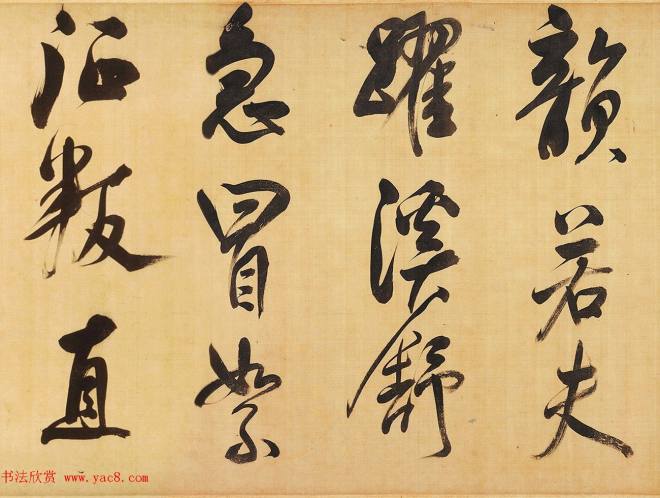 韻若夫
躍溪舒
急冒絮
征叛直
书法欣赏 www.yac8.com